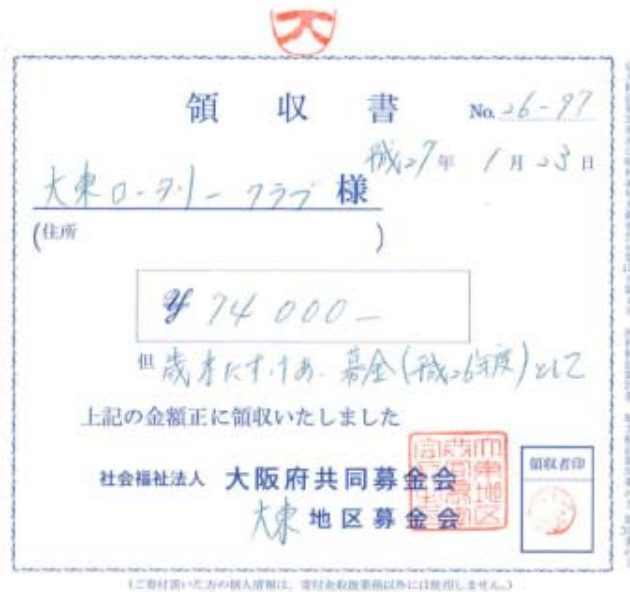 大
領収書 No. 26-97
平成27年 1月23日
大東ロータリークラブ 様
(住所 )
¥74000-
但 歳末たすけあい募金(平成26年度)として
上記の金額正に領収いたしました
社会福祉法人 大阪府共同募金会
大東 地区募金会
領収者印
(ご寄付頂いた方の個人情報は、寄付金取扱業務以外には使用しません。)